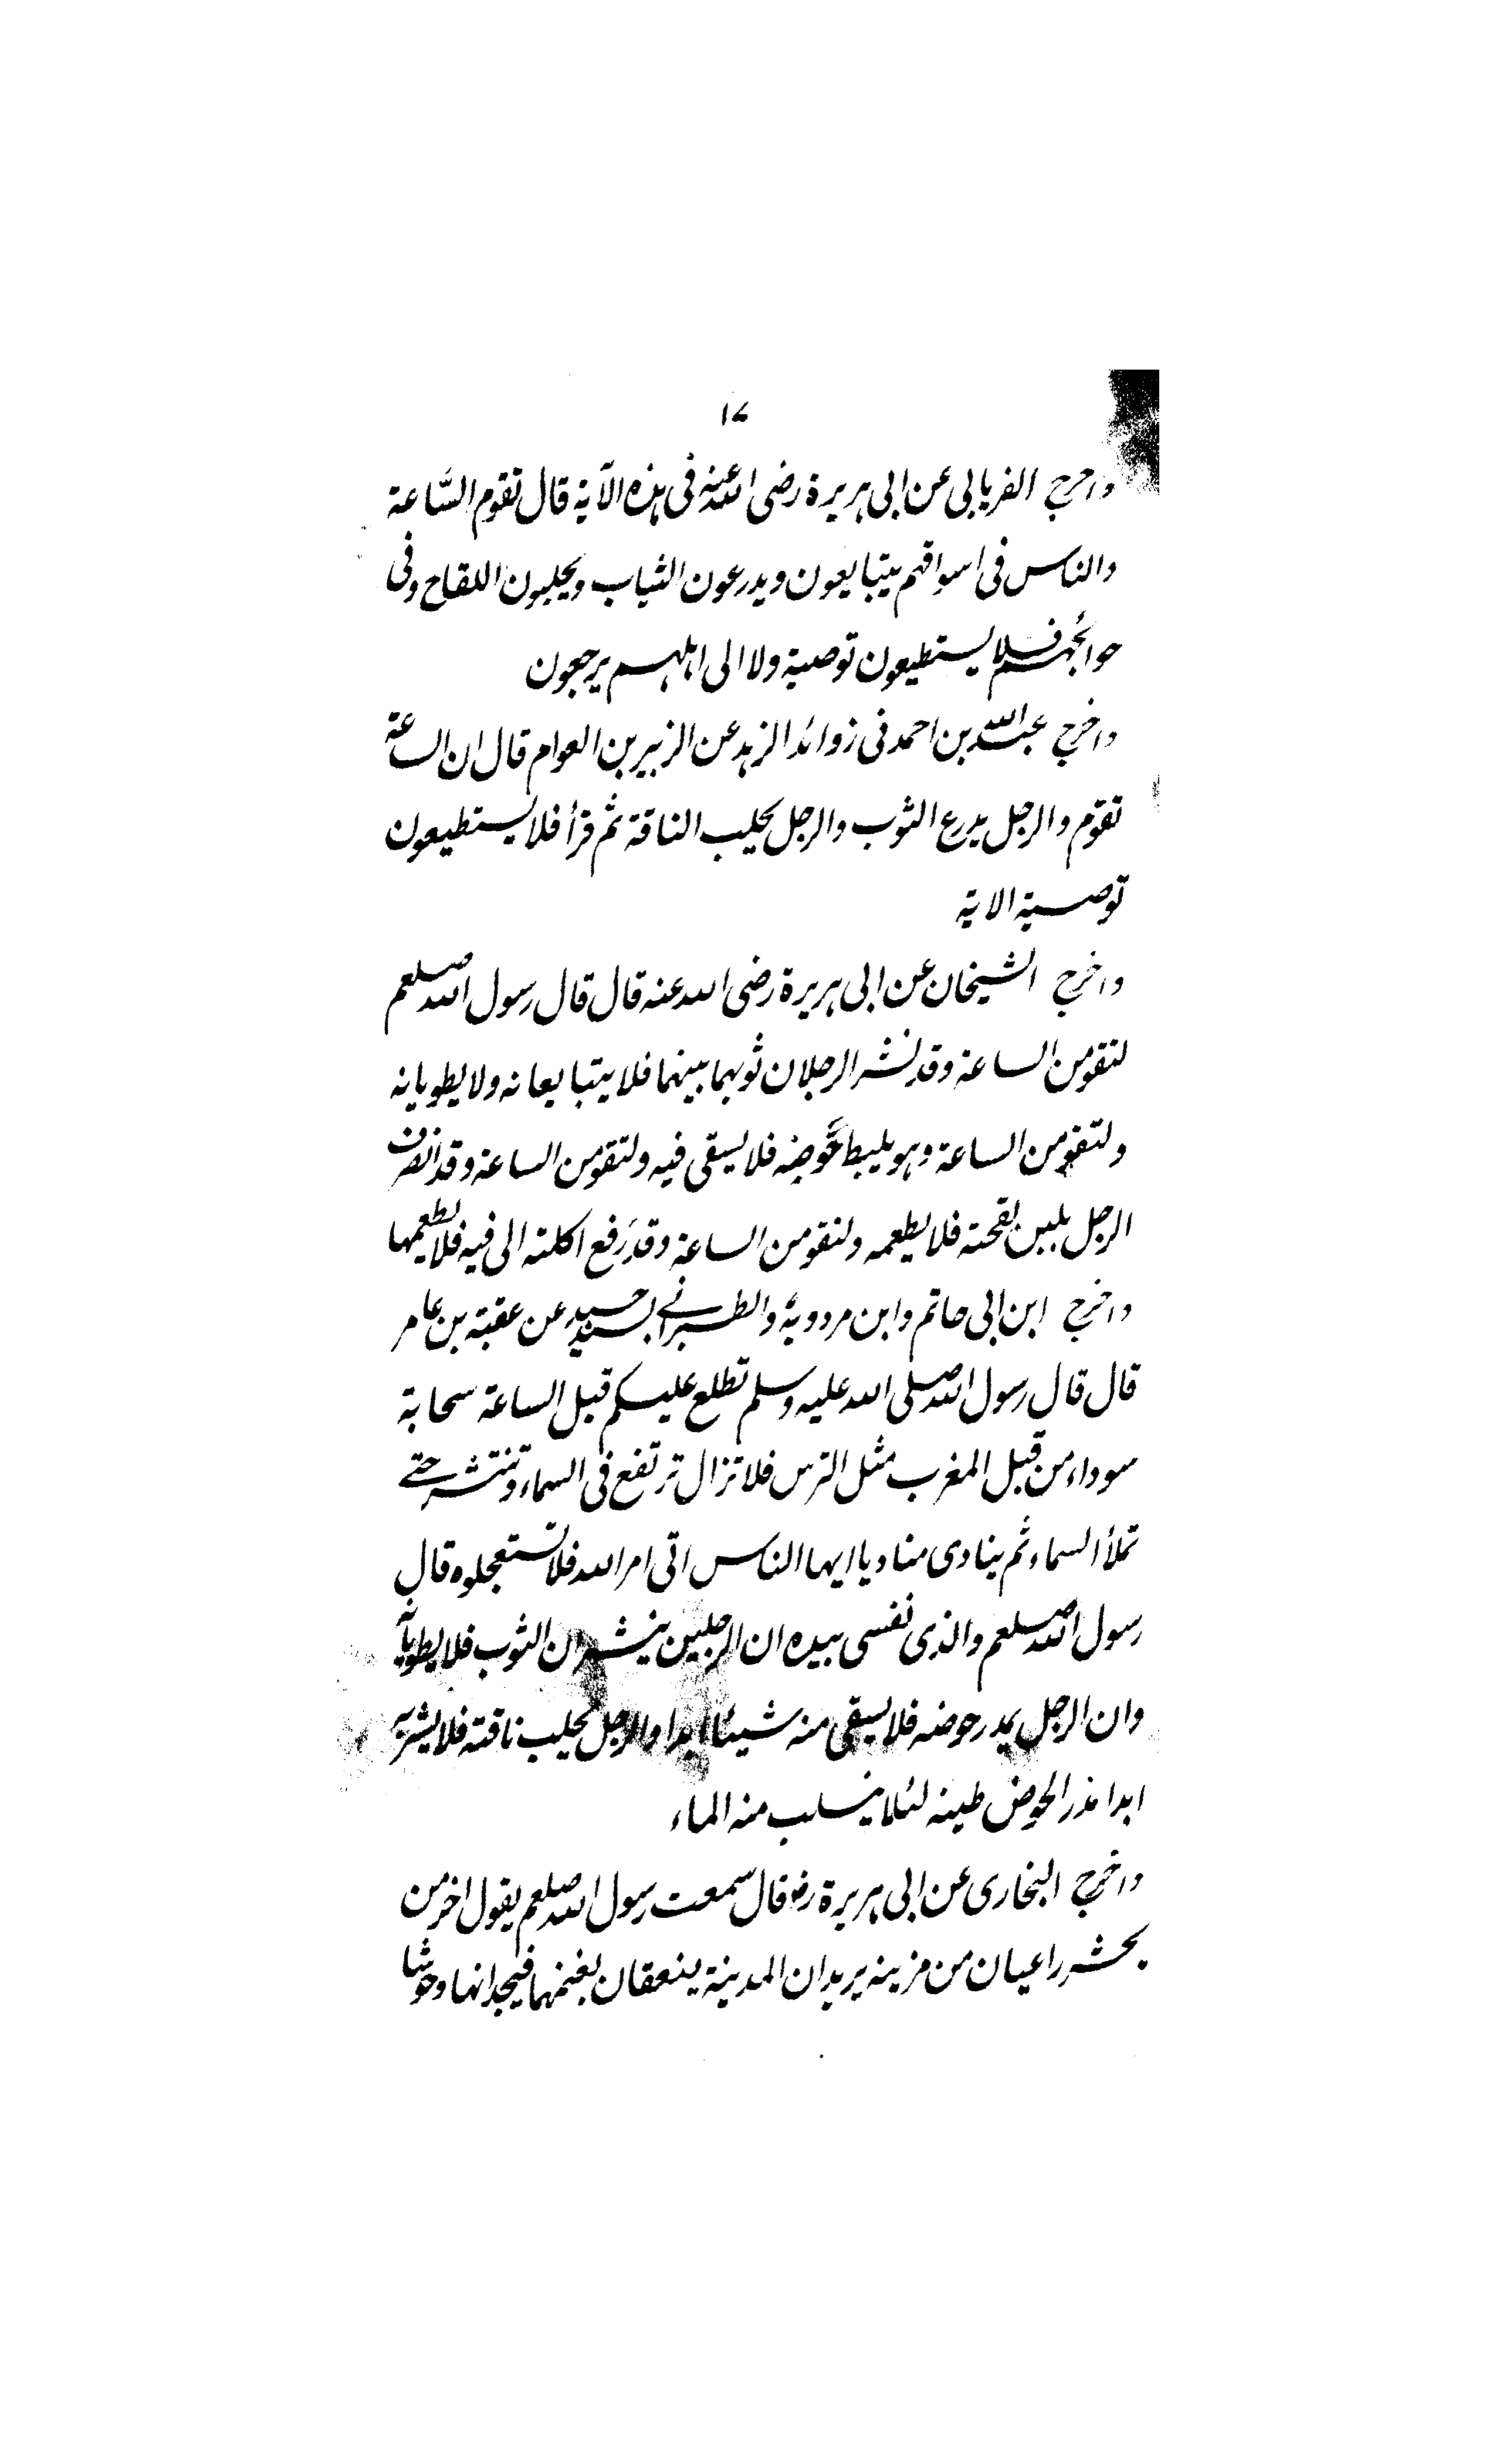 ۱۷
واخرج الفریابی عن ابی ہریرۃ رضی اللہ عنہ فی ہذہ الآیۃ قال تقوم السّاعۃ
والناس فی اسواقہم یتبایعون ویدرعون الثیاب ویحلبون اللقاح وفی
حوائجہم فلا یستطیعون توصیۃ ولا الی اہلہم یرجعون
واخرج عبد اللہ بن احمد فی زوائد الزہد عن الزبیر بن العوام قال ان الساعۃ
تقوم والرجل یدرع الثوب والرجل یحلب الناقۃ ثم قرأ فلا یستطیعون
توصیۃ الایۃ
واخرج الشیخان عن ابی ہریرۃ رضی اللہ عنہ قال قال رسول اللہ صلعم
لتقومن الساعۃ وقد نشر الرجلان ثوبہما بینہما فلا یتبایعانہ ولا یطویانہ
ولتقومن الساعۃ وہو یلیط حوضہ فلا یسقی فیہ ولتقومن الساعۃ وقد انصرف
الرجل بلبن لقحتہ فلا یطعمہ ولتقومن الساعۃ وقد رفع اکلتہ الی فیہ فلا یطعمہا
واخرج ابن ابی حاتم وابن مردویۃ والطبرانی بسند جید عن عقبۃ بن عامر
قال قال رسول اللہ صلی اللہ علیہ وسلم تطلع علیکم قبل الساعۃ سحابۃ
سوداء من قبل المغرب مثل الترس فلا تزال ترتفع فی السماء وتنتشر حتے
تملأ السماء ثم ینادی مناد یا ایہا الناس اتی امر اللہ فلا تستعجلوہ قال
رسول اللہ صلعم والذی نفسی بیدہ ان الرجلین ینشران الثوب فلا یطویانہ
وان الرجل یمدر حوضہ فلا یسقی منہ شیئا ابدا والرجل یحلب ناقتہ فلا یشربہ
ابدا مذر الحوض طینہ لئلا ینسلب منہ الماء
واخرج البخاری عن ابی ہریرۃ رض قال سمعت رسول اللہ صلعم یقول اخر من
یحشر راعیان من مزینہ یریدان المدینۃ ینعقان بغنمہما فیجدانہا وحوشا